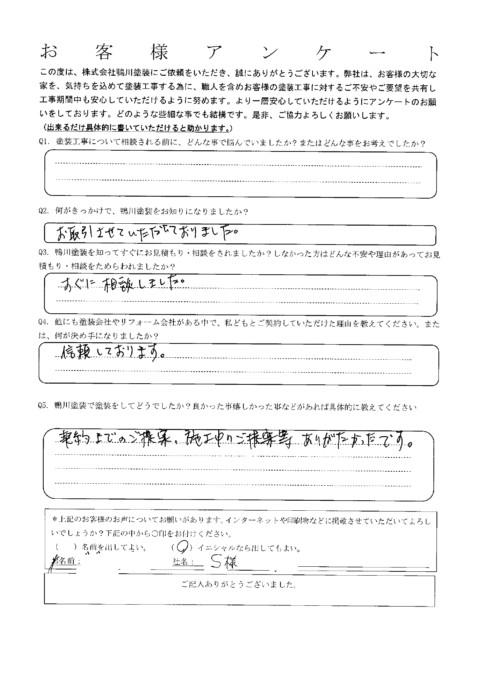 お客様アンケート
この度は、株式会社鴨川塗装にご依頼をいただき、誠にありがとうございます。弊社は、お客様の大切な
家を、気持ちを込めて塗装工事する為に、職人を含めお客様の塗装工事に対するご不安やご要望を共有し
工事期間中も安心していただけるように努めます。より一層安心していただけるようにアンケートのお願
いをしております。どのような些細な事でも結構です。是非、ご協力よろしくお願いします。
(出来るだけ具体的に書いていただけると助かります。)
Q1. 塗装工事について相談される前に、どんな事で悩んでいましたか？またはどんな事をお考えでしたか？
Q2. 何がきっかけで、鴨川塗装をお知りになりましたか？
お取引させていただいておりました。
Q3. 鴨川塗装を知ってすぐにお見積もり・相談をされましたか？しなかった方はどんな不安や理由があってお見
積もり・相談をためらわれましたか？
すぐに相談しました。
Q4. 他にも塗装会社やリフォーム会社がある中で、私どもとご契約していただけた理由を教えてください。また
は、何が決め手になりましたか？
信頼しております。
Q5. 鴨川塗装で塗装をしてどうでしたか？良かった事嬉しかった事などがあれば具体的に教えてください
契約までのご提案、施工中のご提案等 ありがたかったです。
＊上記のお客様のお声についてお願いがあります。インターネットや印刷物などに掲載させていただいてよろし
いでしょうか？下記の中から○印をお付けください。
(　) 名前を出してよい。 (○) イニシャルなら出してもよい。
お名前： 社名： S様
ご記入ありがとうございました。